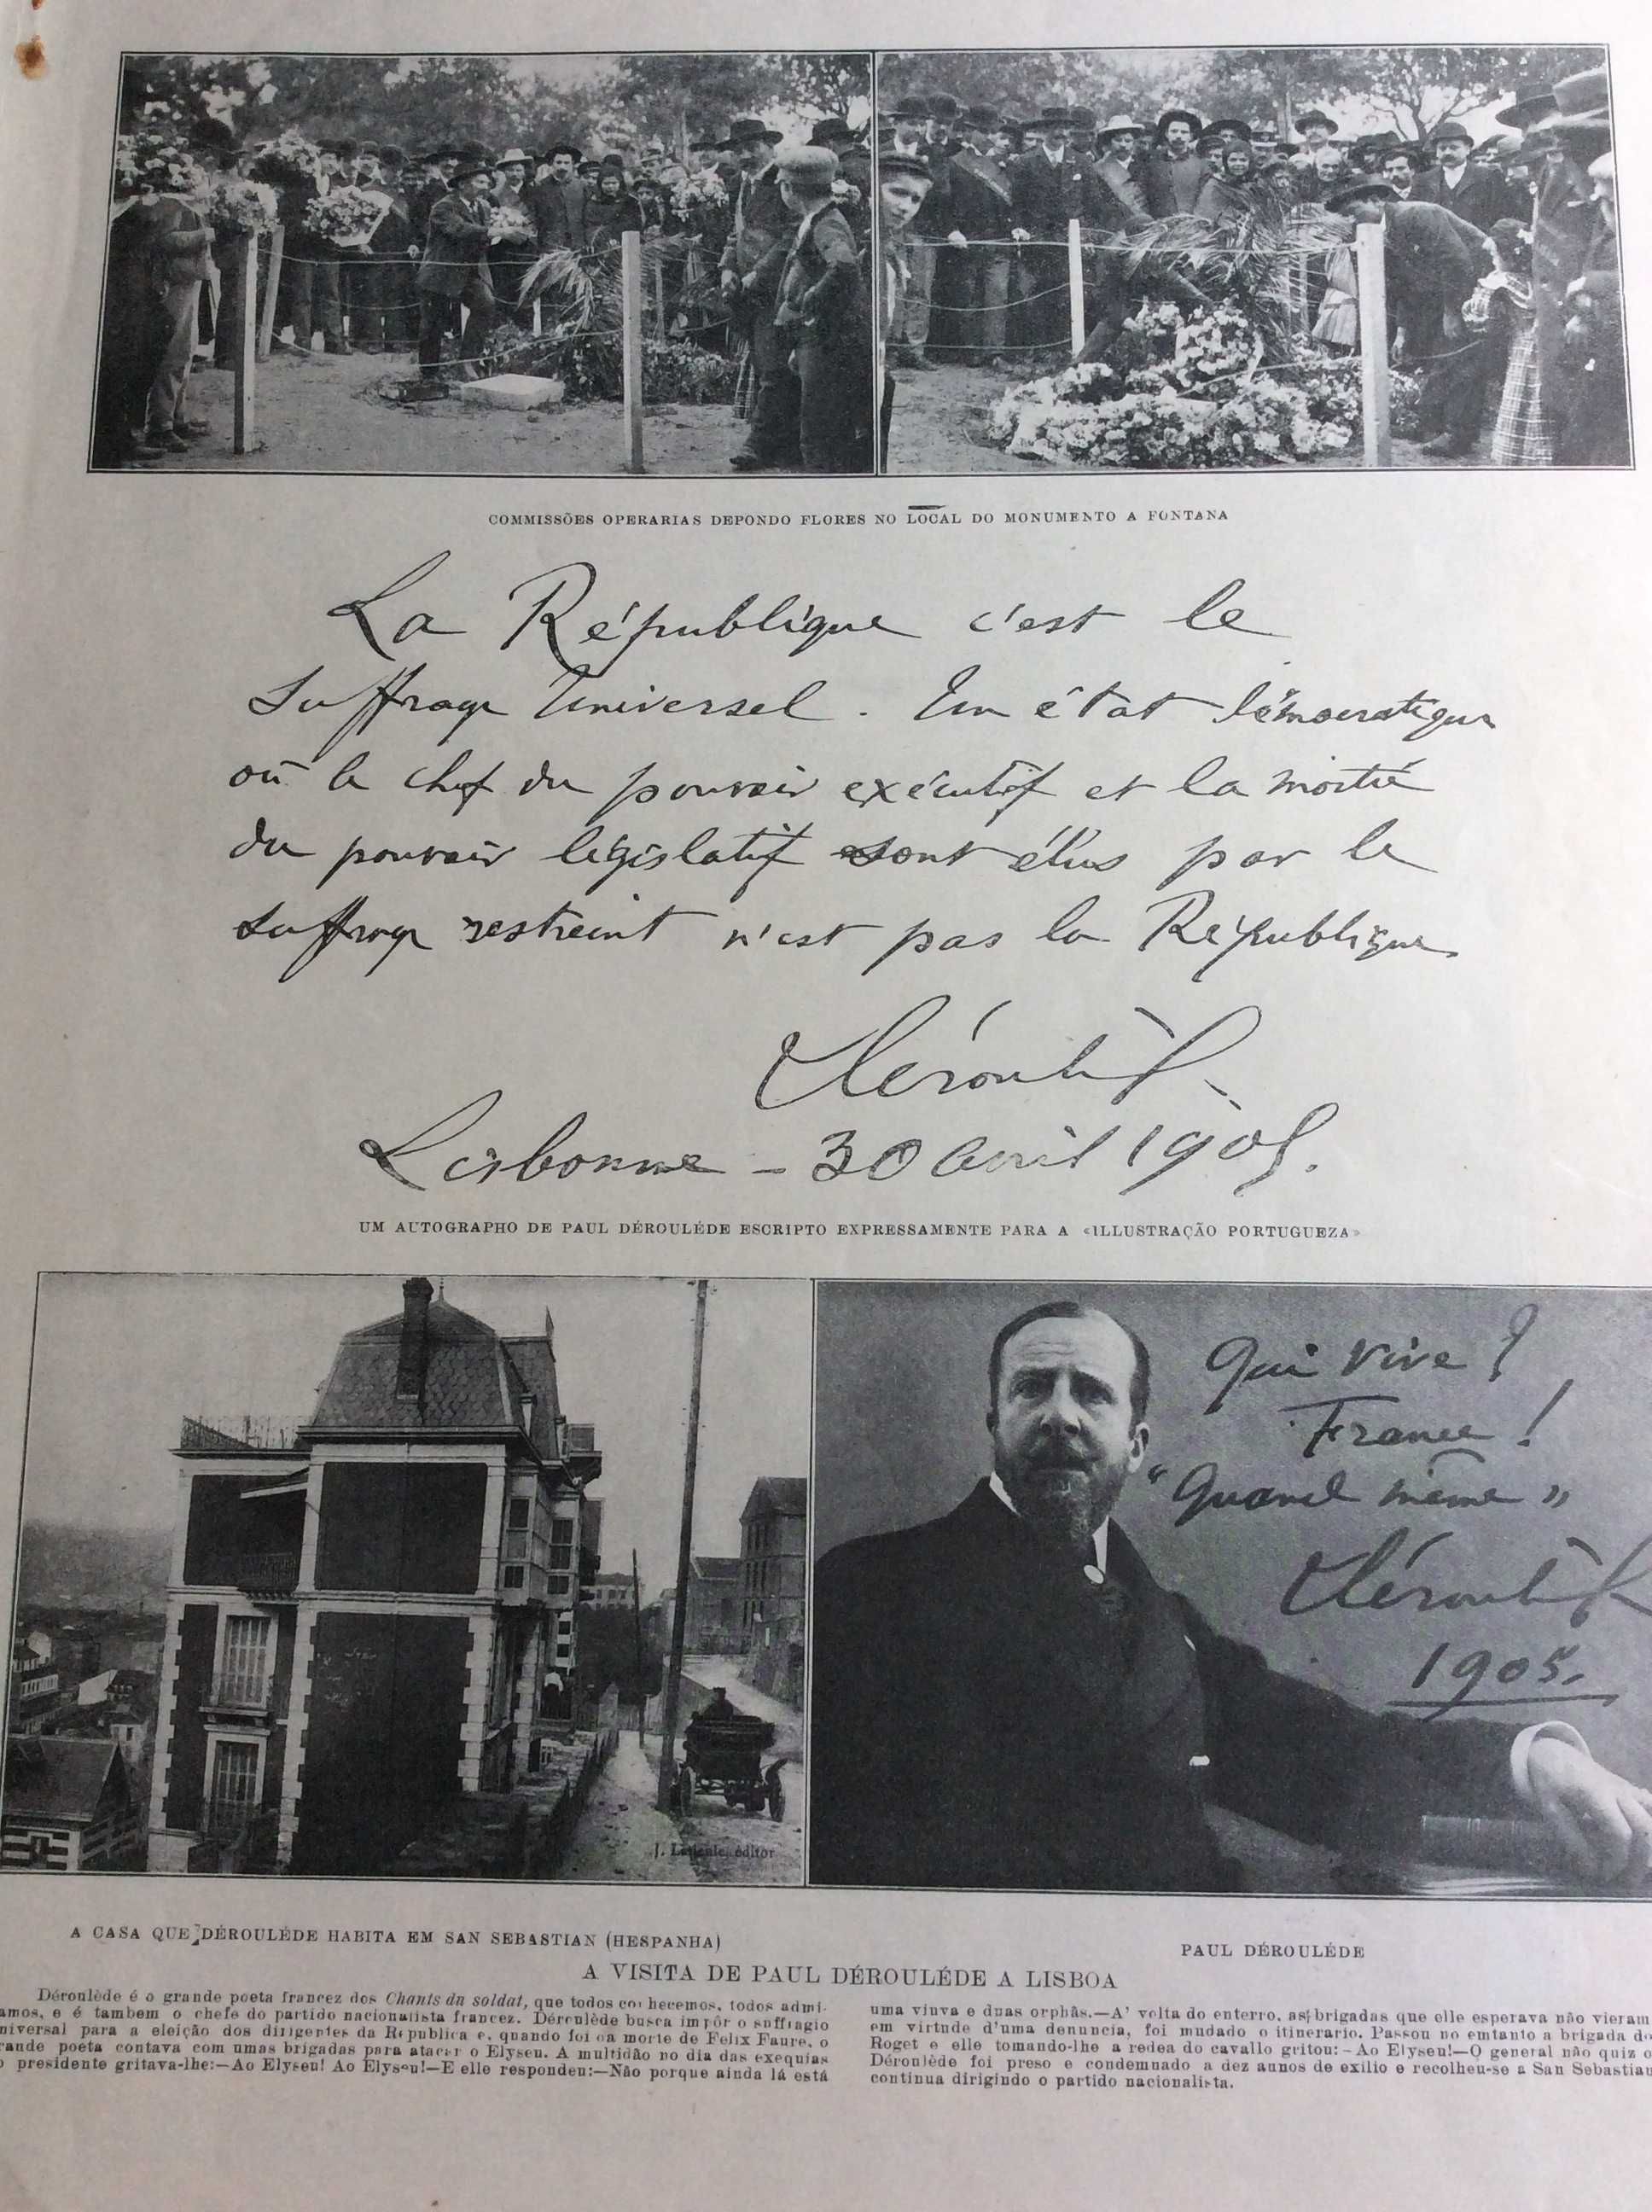 COMMISSÕES OPERARIAS DEPONDO FLORES NO LOCAL DO MONUMENTO A FONTANA
La République c'est le
suffrage Universel. Un état démocratique
où le chef du pouvoir exécutif et la moitié
du pouvoir législatif sont élus par le
suffrage restreint n'est pas la République
Déroulède
Lisbonne - 30 avril 1905.
UM AUTOGRAPHO DE PAUL DÉROULÉDE ESCRIPTO EXPRESSAMENTE PARA A «ILLUSTRAÇÃO PORTUGUEZA»
Qui vive?
France!
"Quand même"
Déroulède
1905.
J. editor
A CASA QUE DÉROULÉDE HABITA EM SAN SEBASTIAN (HESPANHA)
PAUL DÉROULÉDE
A VISITA DE PAUL DÉROULÉDE A LISBOA
Déroulède é o grande poeta francez dos Chants du soldat, que todos conhecemos, todos admi-
amos, e é tambem o chefe do partido nacionalista francez. Déroulède busca impôr o suffragio
niversal para a eleição dos dirigentes da Republica e, quando foi da morte de Felix Faure, o
rande poeta contava com umas brigadas para atacar o Elyseu. A multidão no dia das exequias
o presidente gritava-lhe:—Ao Elyseu! Ao Elyseu!—E elle respondeu:—Não porque ainda lá está
uma viuva e duas orphãs.—A' volta do enterro, as brigadas que elle esperava não vieram
em virtude d'uma denuncia, foi mudado o itinerario. Passou no emtanto a brigada do
Roget e elle tomando-lhe a redea do cavallo gritou:—Ao Elyseu!—O general não quiz o
Déroulède foi preso e condemnado a dez annos de exilio e recolheu-se a San Sebastian
continua dirigindo o partido nacionalista.